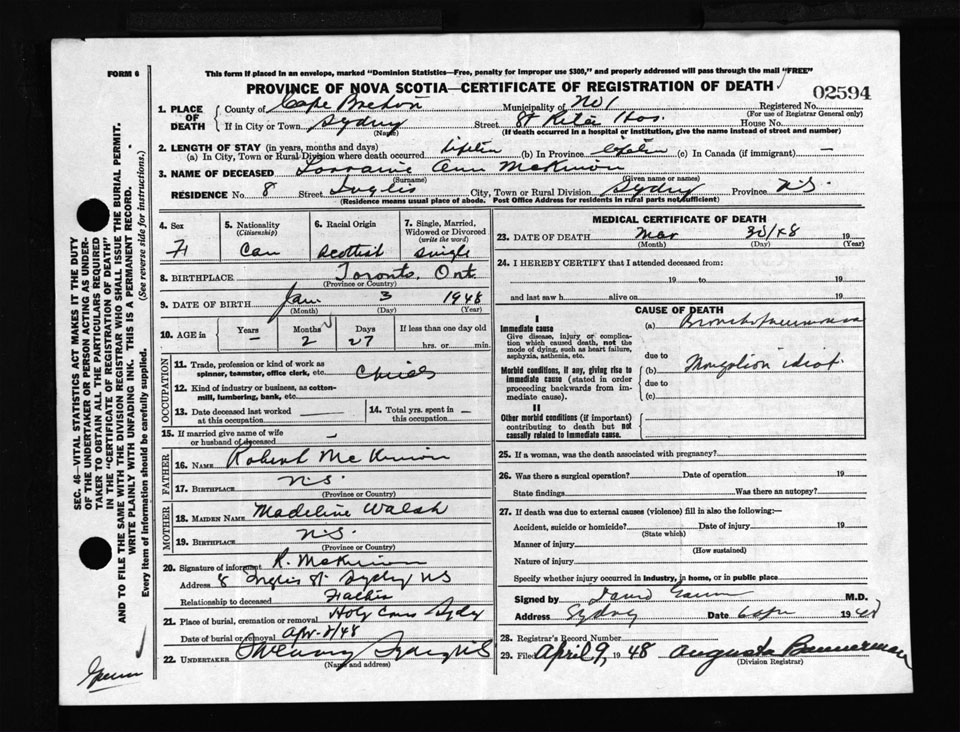 FORM 6
This form if placed in an envelope, marked "Dominion Statistics—Free, penalty for improper use $300," and properly addressed will pass through the mail "FREE"
PROVINCE OF NOVA SCOTIA—CERTIFICATE OF REGISTRATION OF DEATH
02594
1. PLACE OF DEATH
County of Cape Breton Municipality of No 1 Registered No.
(For use of Registrar General only)
If in City or Town Sydney Street St Rita Hos. House No.
(Name) (If death occurred in a hospital or institution, give the name instead of street and number)
2. LENGTH OF STAY (in years, months and days)
(a) In City, Town or Rural Division where death occurred lifetime (b) In Province lifetime (c) In Canada (if immigrant) —
3. NAME OF DECEASED Lorraine Ann McKinnon
(Surname) (Given name or names)
RESIDENCE No. 8 Street Inglis City, Town or Rural Division Sydney Province N.S.
(Residence means usual place of abode. Post Office Address for residents in rural parts not sufficient)
4. Sex
F
5. Nationality
(Citizenship)
Can
6. Racial Origin
Scottish
7. Single, Married, Widowed or Divorced
(write the word)
Single
8. BIRTHPLACE Toronto, Ont.
(Province or Country)
9. DATE OF BIRTH Jan 3 1948
(Month) (Day) (Year)
10. AGE in
Years Months Days If less than one day old
— 2 27 hrs. or min.
OCCUPATION
11. Trade, profession or kind of work as spinner, teamster, office clerk, etc. Child
12. Kind of industry or business, as cotton-mill, lumbering, bank, etc.
13. Date deceased last worked at this occupation —
14. Total yrs. spent in this occupation —
15. If married give name of wife or husband of deceased —
FATHER
16. NAME Robert McKinnon
17. BIRTHPLACE N.S.
(Province or Country)
MOTHER
18. MAIDEN NAME Madeline Walsh
19. BIRTHPLACE N.S.
(Province or Country)
20. Signature of informant R. McKinnon
Address 8 Inglis St. Sydney NS
Relationship to deceased Father
21. Place of burial, cremation or removal Holy Cross Sydney
Date of burial or removal Apr. 1/48
22. UNDERTAKER Sydney NS
(Name and address)
MEDICAL CERTIFICATE OF DEATH
23. DATE OF DEATH Mar 30/48 19
(Month) (Day) (Year)
24. I HEREBY CERTIFY that I attended deceased from:
19 to 19
and last saw h alive on 19
CAUSE OF DEATH
I
Immediate cause
Give disease, injury or complication which caused death, not the mode of dying, such as heart failure, asphyxia, asthenia, etc.
(a) Bronchopneumonia
due to
Morbid conditions, if any, giving rise to immediate cause (stated in order proceeding backwards from immediate cause).
(b) Mongolian idiot.
due to
(c)
II
Other morbid conditions (if important) contributing to death but not causally related to immediate cause.
25. If a woman, was the death associated with pregnancy?
26. Was there a surgical operation? Date of operation 19
State findings Was there an autopsy?
27. If death was due to external causes (violence) fill in also the following:—
Accident, suicide or homicide? Date of injury 19
(State which)
Manner of injury
(How sustained)
Nature of injury
Specify whether injury occurred in industry, in home, or in public place
Signed by David M.D.
Address Sydney Date 19 48
28. Registrar's Record Number
29. Filed April 9, 19 48 Augusta Bannerman
(Division Registrar)
SEC. 46—VITAL STATISTICS ACT MAKES IT THE DUTY
OF THE UNDERTAKER OR PERSON ACTING AS UNDER-
TAKER TO OBTAIN ALL THE PARTICULARS REQUIRED
IN THE "CERTIFICATE OF REGISTRATION OF DEATH"
AND TO FILE THE SAME WITH THE DIVISION REGISTRAR WHO SHALL ISSUE THE BURIAL PERMIT.
WRITE PLAINLY WITH UNFADING INK. THIS IS A PERMANENT RECORD.
Every item of information should be carefully supplied. (See reverse side for instructions.)